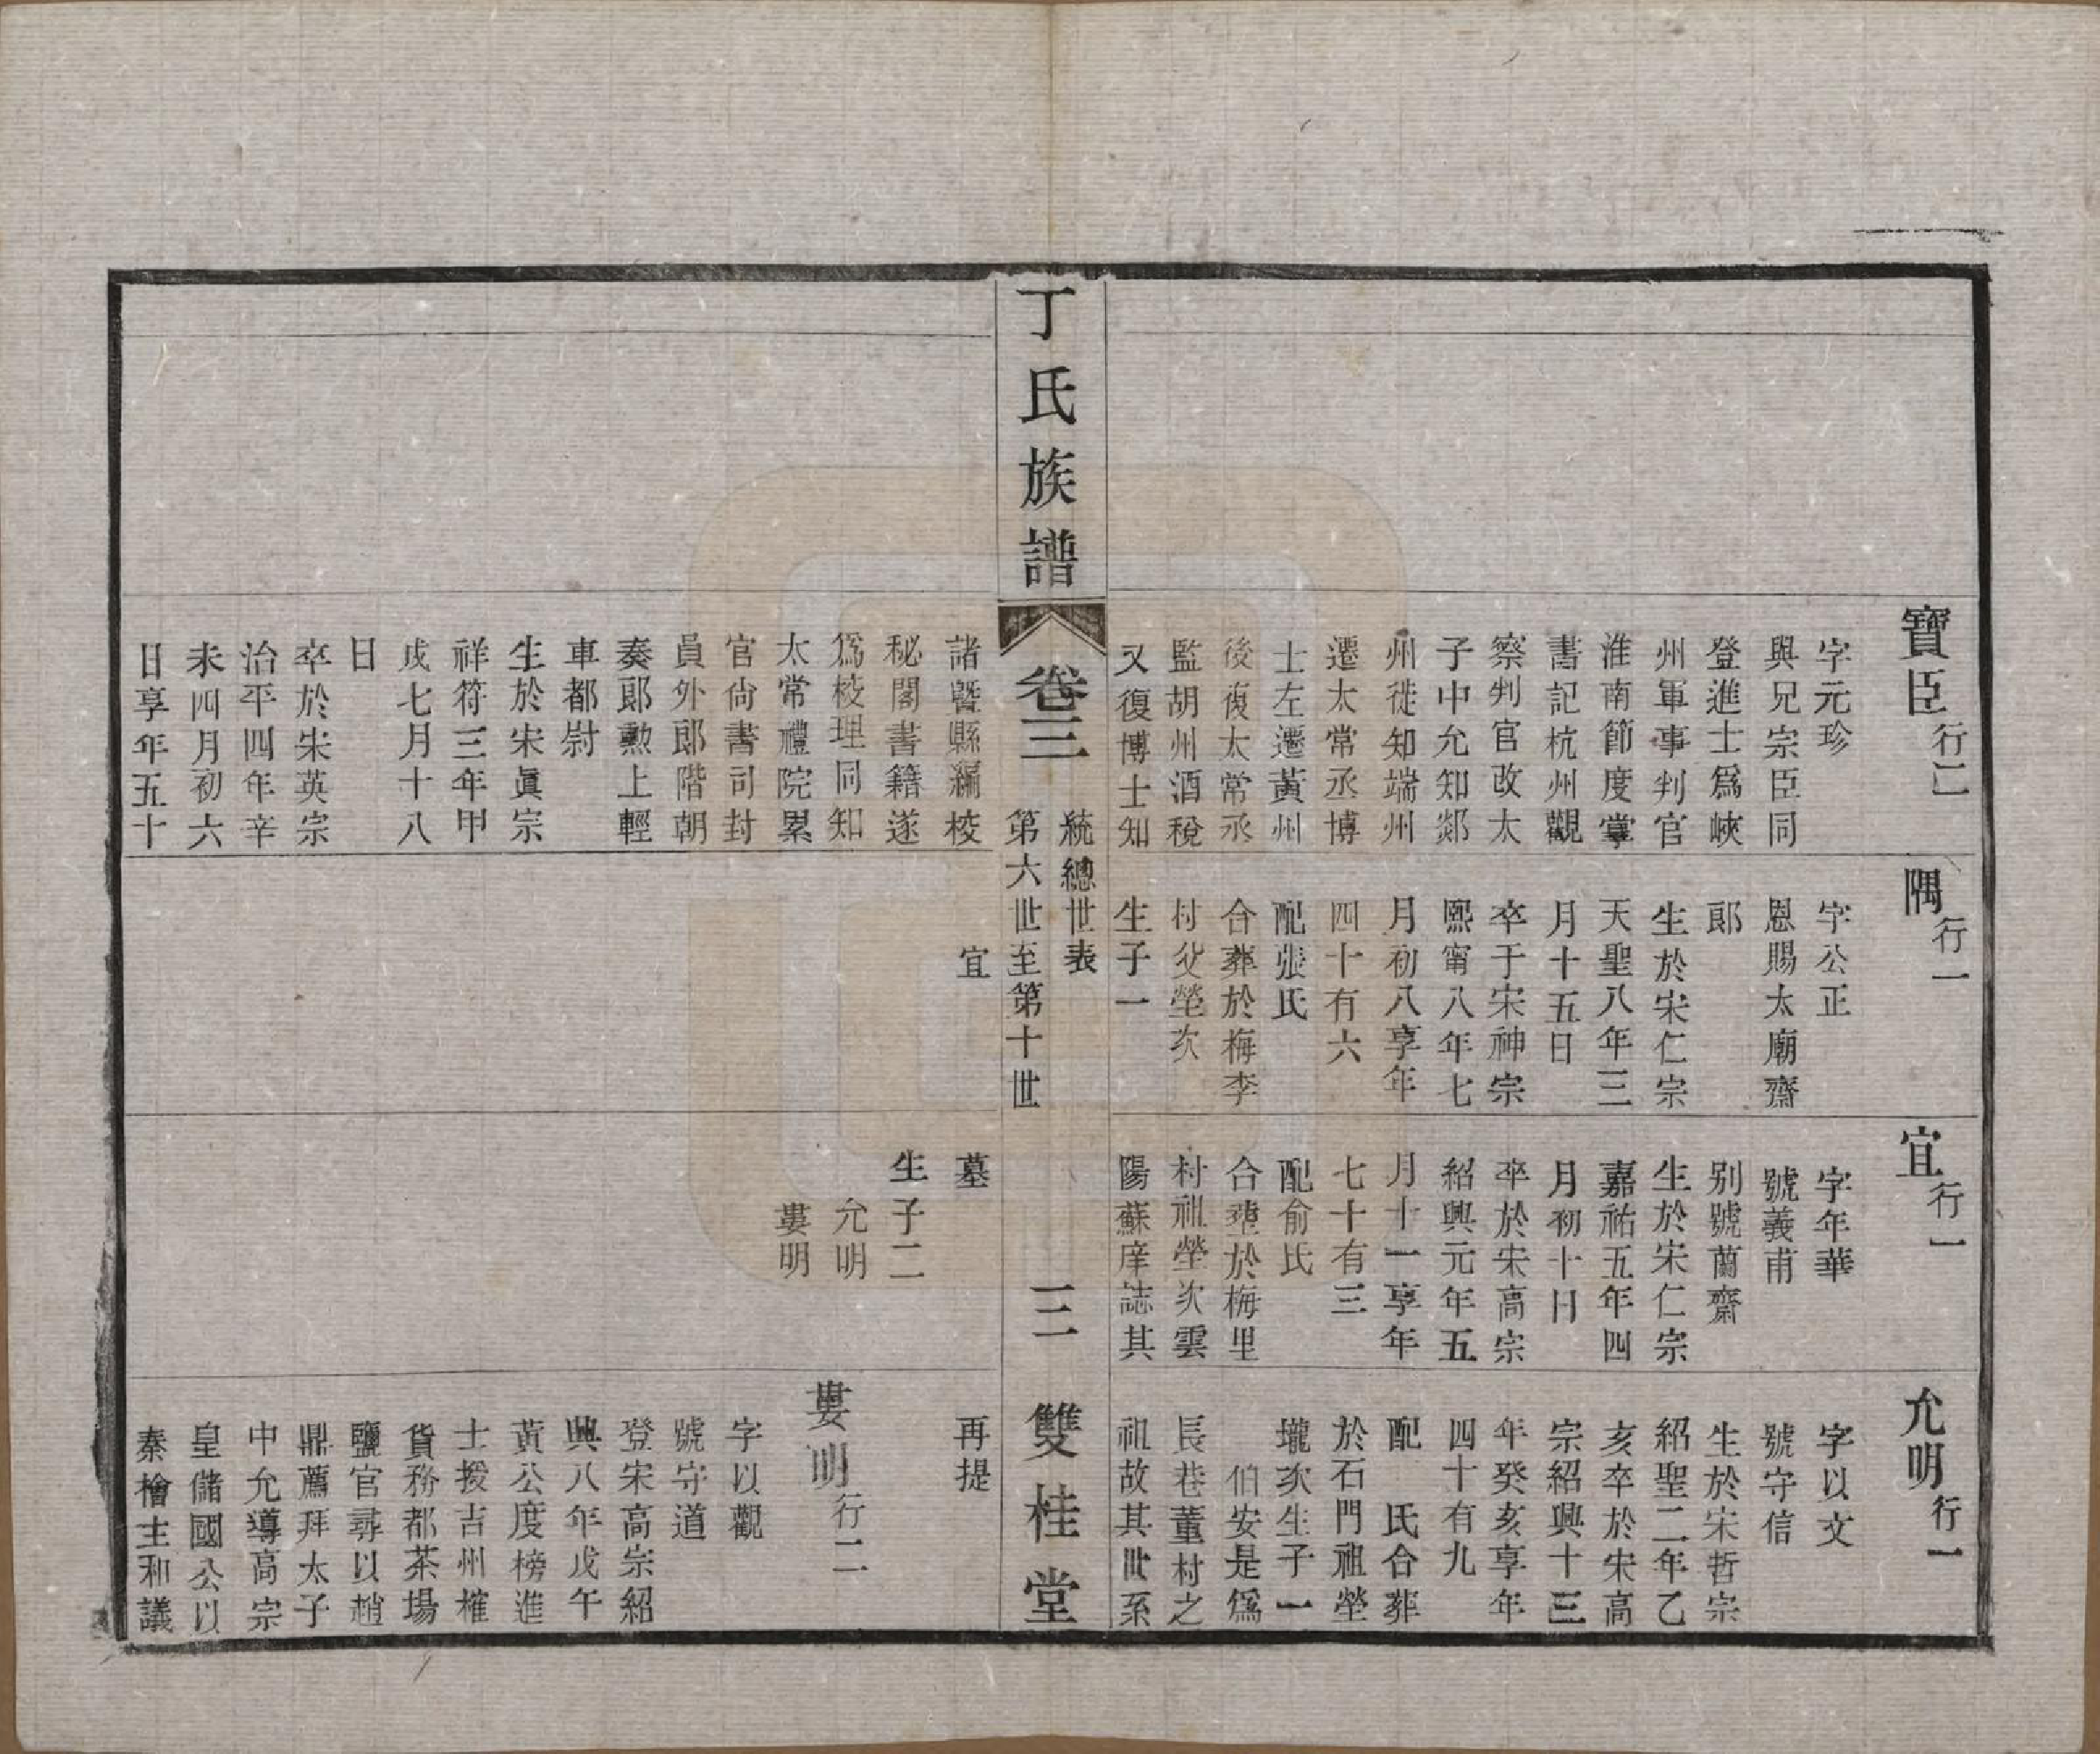 寶臣行二
字元珍
與兄宗臣同
登進士爲峽
州軍事判官
淮南節度掌
書記杭州觀
察判官改太
子中允知郯
州徙知端州
遷太常丞博
士左遷黃州
後復太常丞
監胡州酒稅
又復博士知
隅行一
字公正
恩賜太廟齋
郎
生於宋仁宗
天聖八年三
月十五日
卒于宋神宗
熙甯八年七
月初八享年
四十有六
配張氏
合葬於梅李
村父塋次
生子一
宜行一
字年華
號義甫
别號蘭齋
生於宋仁宗
嘉祐五年四
月初十日
卒於宋高宗
紹興元年五
月十一享年
七十有三
配俞氏
合塟於梅里
村祖塋次雲
陽蘇庠誌其
允明行一
字以文
號守信
生於宋哲宗
紹聖二年乙
亥卒於宋高
宗紹興十三
年癸亥享年
四十有九
配　氏合葬
於石門祖塋
壠次生子一
伯安是爲
長巷董村之
祖故其世系
丁氏族譜
卷三
統總世表
第六世至第十世
三
雙桂堂
諸暨縣編校
秘閣書籍遂
爲校理同知
太常禮院累
官尙書司封
員外郎階朝
奏郎勳上輕
車都尉
生於宋眞宗
祥符三年甲
戌七月十八
日
卒於宋英宗
治平四年辛
未四月初六
日享年五十
宜
墓
生子二
允明
婁明
再提
婁明行二
字以觀
號守道
登宋高宗紹
興八年戊午
黃公度榜進
士授吉州榷
貨務都茶場
鹽官尋以趙
鼎薦拜太子
中允導高宗
皇儲國公以
秦檜主和議